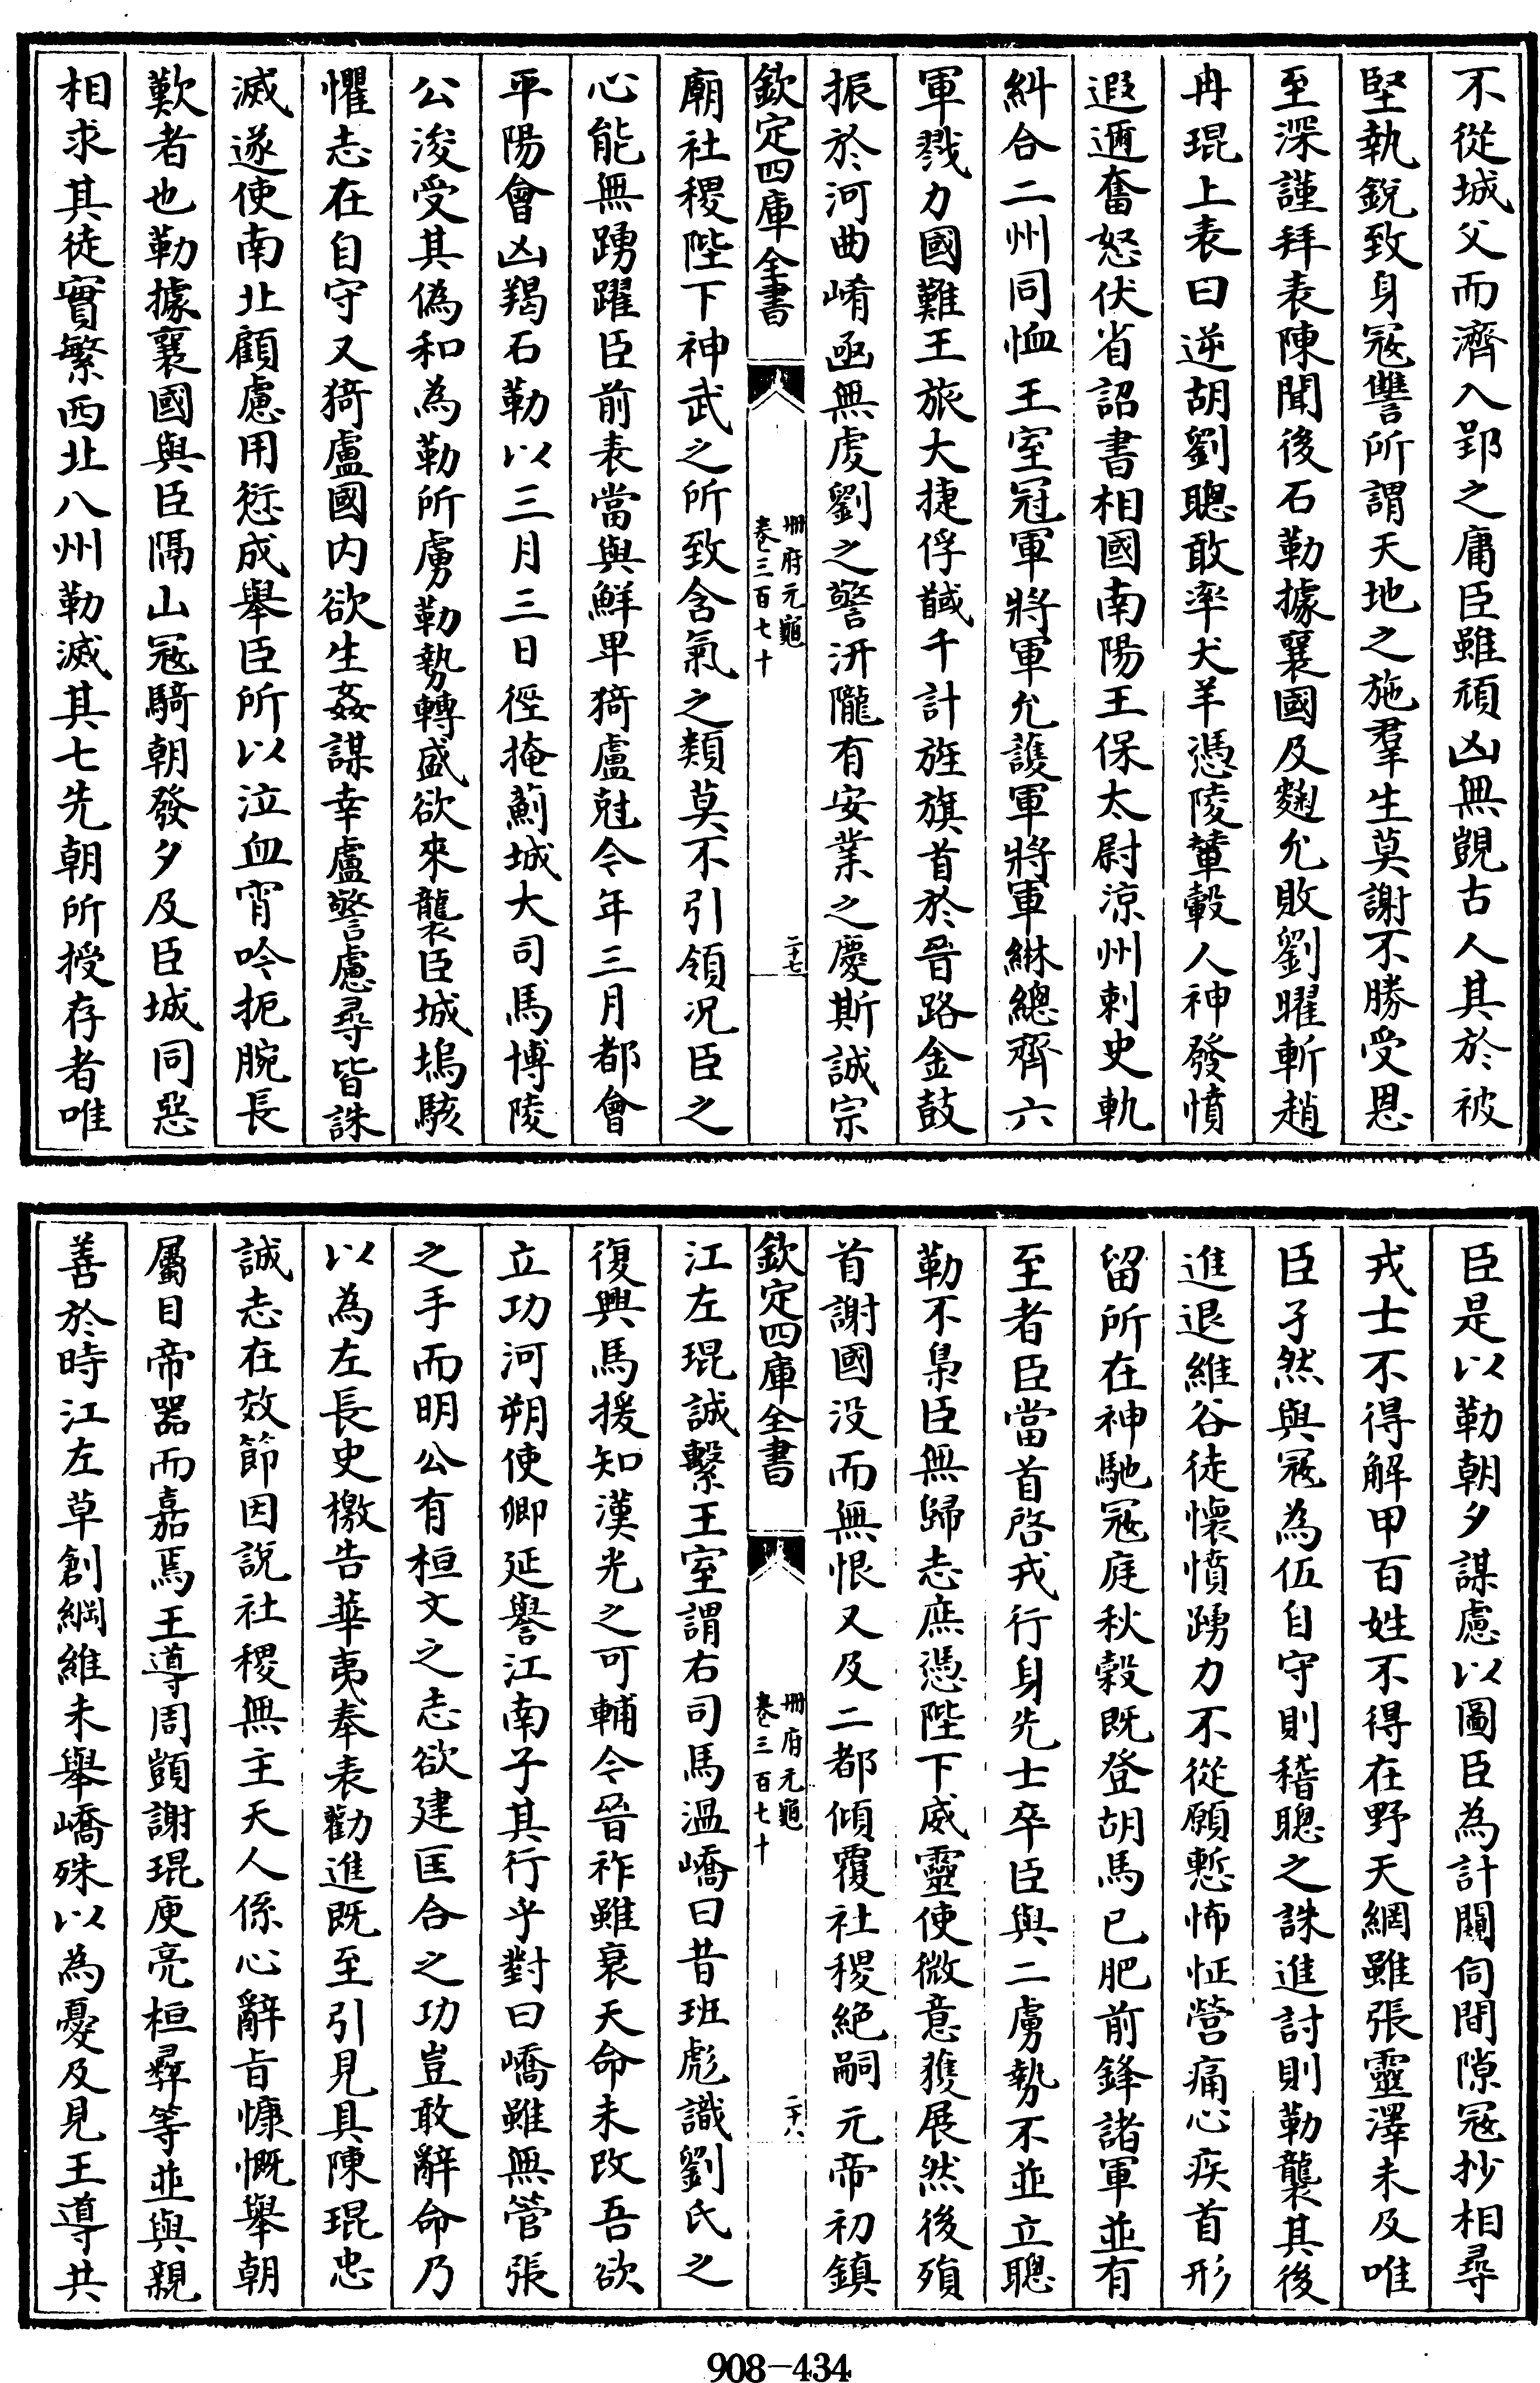 不從城父而濟入郢之庸臣雖頑凶無覬古人其於被
堅執銳致身冦讐所謂天地之施羣生莫謝不勝受恩
至深謹拜表陳聞後石勒據襄國及麴允敗劉曜斬趙
冉琨上表曰逆胡劉聰敢率犬羊憑陵輦轂人神發憤
遐邇奮怒伏省詔書相國南陽王保太尉涼州刺史軌
糾合二州同恤王室冠軍將軍允護軍將軍綝總齊六
軍戮力國難王旅大捷俘馘千計旌旗首於晉路金鼓
振於河曲崤函無虔劉之警汧隴有安業之慶斯誠宗
欽定四庫全書
冊府元龜
卷三百七十
二十七
廟社稷陛下神武之所致含氣之類莫不引領況臣之
心能無踴躍臣前表當與鮮卑猗盧尅今年三月都會
平陽會凶羯石勒以三月三日徑掩薊城大司馬博陵
公浚受其偽和為勒所虜勒勢轉盛欲來襲臣城塢駭
懼志在自守又猗盧國内欲生姦謀幸盧警慮尋皆誅
滅遂使南北顧慮用愆成舉臣所以泣血宵吟扼腕長
歎者也勒據襄國與臣隔山冦騎朝發夕及臣城同惡
相求其徒實繁西北八州勒滅其七先朝所授存者唯
臣是以勒朝夕謀慮以圖臣為計闚伺間隙冦抄相尋
戎士不得解甲百姓不得在野天網雖張靈澤未及唯
臣孑然與冦為伍自守則稽聰之誅進討則勒襲其後
進退維谷徒懷憤踴力不從願慙怖怔營痛心疾首形
留所在神馳冦庭秋榖既登胡馬已肥前鋒諸軍並有
至者臣當首啓戎行身先士卒臣與二虜勢不並立聰
勒不梟臣無歸志庶憑陛下威靈使微意獲展然後殞
首謝國没而無恨又及二都傾覆社稷絶嗣元帝初鎮
欽定四庫全書
冊府元龜
卷三百七十
二十八
江左琨誠繫王室謂右司馬温嶠曰昔班彪識劉氏之
復興馬援知漢光之可輔今晉祚雖衰天命未改吾欲
立功河朔使卿延譽江南子其行乎對曰嶠雖無管張
之手而明公有桓文之志欲建匡合之功豈敢辭命乃
以為左長史檄告華夷奉表勸進既至引見具陳琨忠
誠志在效節因說社稷無主天人係心辭旨慷慨舉朝
屬目帝器而嘉焉王導周顗謝琨庾亮桓彝等並與親
善於時江左草創綱維未舉嶠殊以為憂及見王導共
908-434